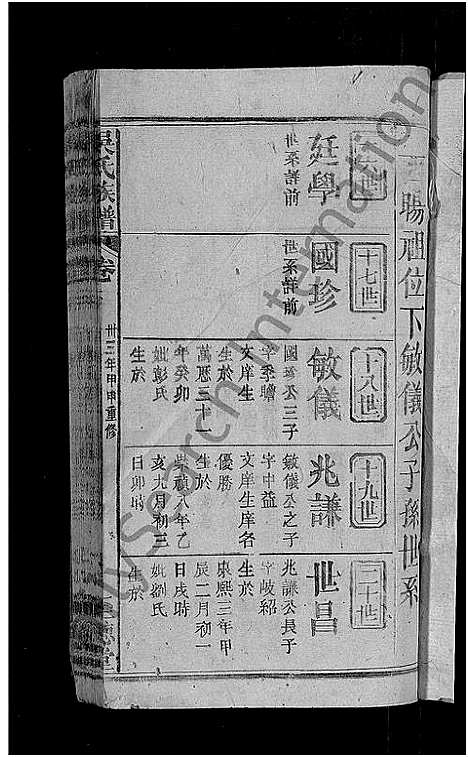 賜祖位下敏儀公子孫世系
十六世
廷學
世系詳前
十七世
國珍
世系詳前
十八世
敏儀
國珍公三子
字季瞻
文庠生
生於
萬歷三十一
年癸卯
妣彭氏
生於
十九世
兆謙
敏儀公之子
字中益
文庠生庠名
優勝
生於
崇禎八年乙
亥九月初三
日卯時
二十世
世昌
兆謙公長子
字岐紹
生於
康熙三年甲
辰二月初一
日戌時
妣劉氏
生於
吳氏族譜
卷
卅三年甲申重修
堂
MySearch International